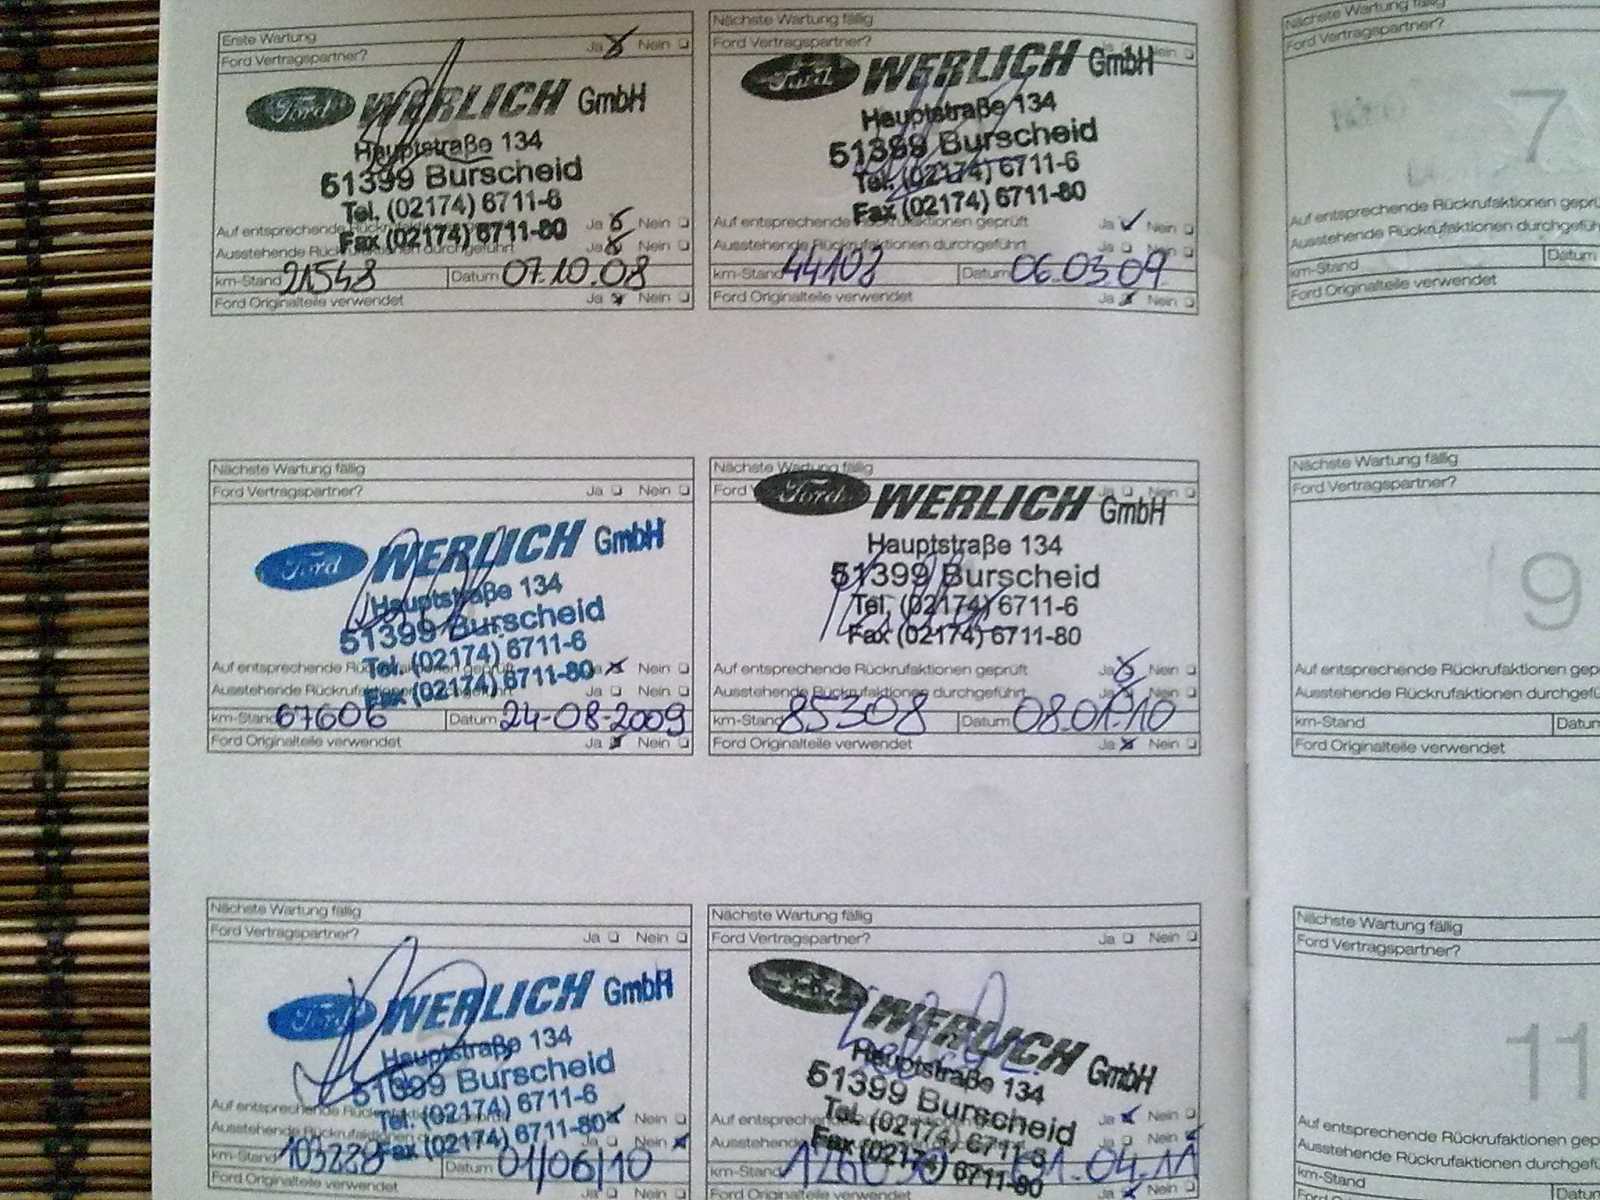 Erste Wartung
Ford Vertragspartner? Ja Nein
Ford WERLICH GmbH
Hauptstraße 134
51399 Burscheid
Tel. (02174) 6711-6
Fax (02174) 6711-80
Auf entsprechende Ja Nein
Ausstehende Ja Nein
km-Stand 21548 Datum 07.10.08
Ford Originalteile verwendet Ja Nein
Nächste Wartung fällig
Ford Vertragspartner? Nein
Ford WERLICH GmbH
Hauptstraße 134
51399 Burscheid
Tel. (02174) 6711-6
Fax (02174) 6711-80
Auf entsprechende Rückrufaktionen geprüft Ja Nein
Ausstehende Rückrufaktionen durchgeführt Ja Nein
km-Stand 44108 Datum 06.03.09
Ford Originalteile verwendet Ja Nein
Nächste Wartung fällig
Ford Vertragspartner?
7
Auf entsprechende Rückrufaktionen
Ausstehende Rückrufaktionen
km-Stand Datum
Ford Originalteile verwendet
Nächste Wartung fällig
Ford Vertragspartner? Ja Nein
Ford WERLICH GmbH
Hauptstraße 134
51399 Burscheid
Tel. (02174) 6711-6
Fax (02174) 6711-80
Auf entsprechende Nein
Ausstehende Ja Nein
km-Stand 67606 Datum 24-08-2009
Ford Originalteile verwendet Ja Nein
Nächste Wartung fällig
Ford Ja Nein
Ford WERLICH GmbH
Hauptstraße 134
51399 Burscheid
Tel. (02174) 6711-6
Fax (02174) 6711-80
Auf entsprechende Rückrufaktionen geprüft Ja Nein
Ausstehende Rückrufaktionen durchgeführt Ja Nein
km-Stand 85308 Datum 08.01.10
Ford Originalteile verwendet Ja Nein
Nächste Wartung fällig
Ford Vertragspartner?
9
Auf entsprechende Rückrufaktionen
Ausstehende Rückrufaktionen
km-Stand Datum
Ford Originalteile verwendet
Nächste Wartung fällig
Ford Vertragspartner? Ja Nein
Ford WERLICH GmbH
Hauptstraße 134
51399 Burscheid
Tel. (02174) 6711-6
Fax (02174) 6711-80
Auf entsprechende Nein
Ausstehende Ja Nein
km-Stand 103228 Datum 01/06/10
Ford Originalteile verwendet Ja Nein
Nächste Wartung fällig
Ford Vertragspartner? Ja Nein
WERLICH GmbH
Hauptstraße 134
51399 Burscheid
Tel. (02174) 6711-6
Fax (02174) 6711-80
Auf entsprechende Ja Nein
Ausstehende Ja Nein
km-Stand 04.11
Ford Originalteile verwendet Ja Nein
Nächste Wartung fällig
Ford Vertragspartner?
11
Auf entsprechende Rückrufaktionen
Ausstehende Rückrufaktionen
km-Stand